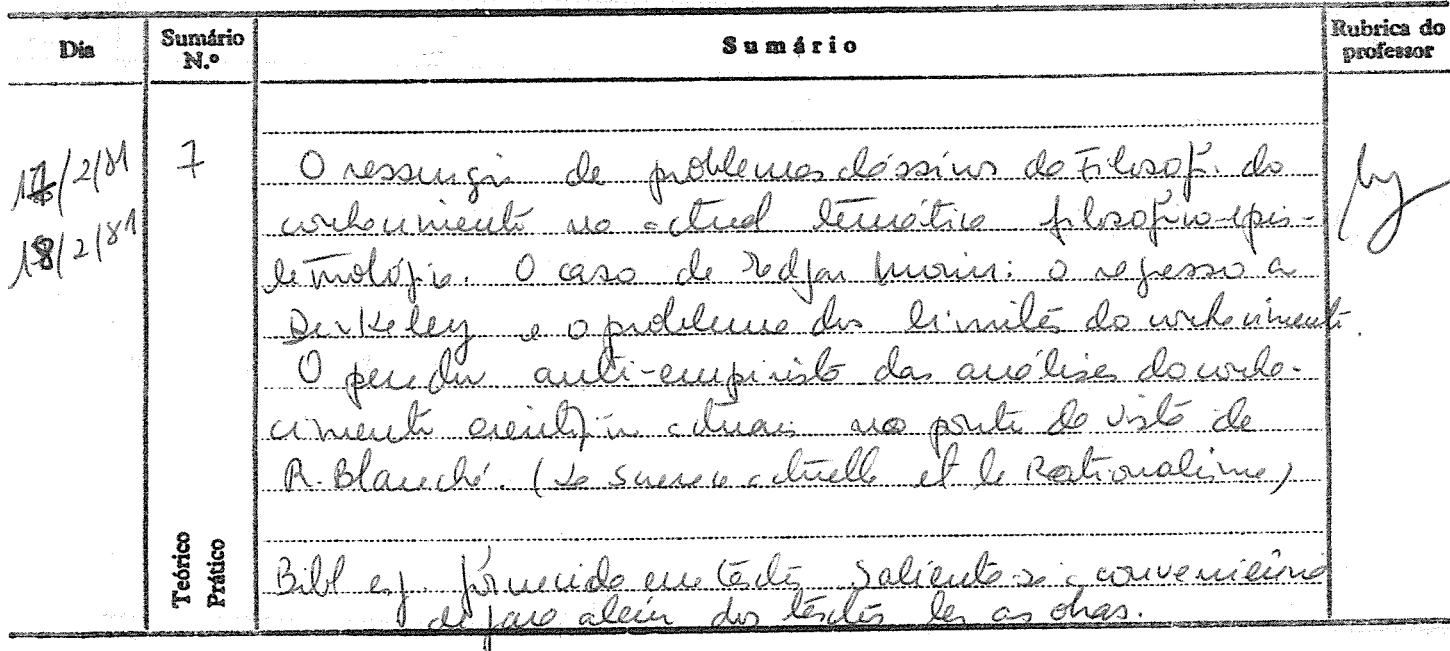 Dia
Sumário N.º
Sumário
Rubrica do professor
17/2/81
18/2/81
7
O ressurgir de problemas clássicos da Filosof. do
conhecimento na actual temática filosófico-epis-
temológica. O caso de Edgar Morin: o regresso a
Berkeley e o problema dos limites do conhecimento.
O pendor anti-empirista das análises do conhe-
cimento científico actuais no ponto de vista de
R. Blanché. (La Science actuelle et le Rationalisme)
Teórico
Prático
Bibl esp. fornecida em texto Salienta-se a conveniência
de para além dos textos ler as obras.